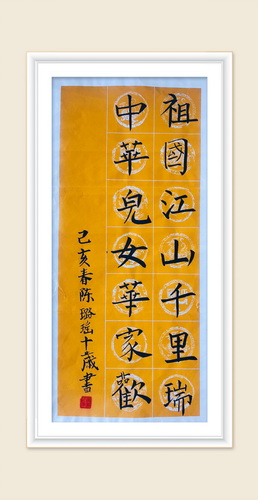 祖國江山千里瑞
中華兒女華家歡
己亥春陈璐瑶十歲書